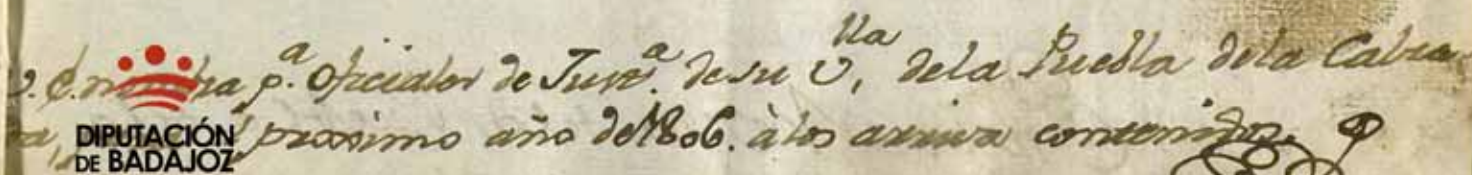 V. E. nombra p.ª Oficiales de Just.ª de su V.ˡˡᵃ, dela Puebla dela Calza-
ra, proximo año de 1806. à los arriva contenidos.
DIPUTACIÓN
DE BADAJOZ